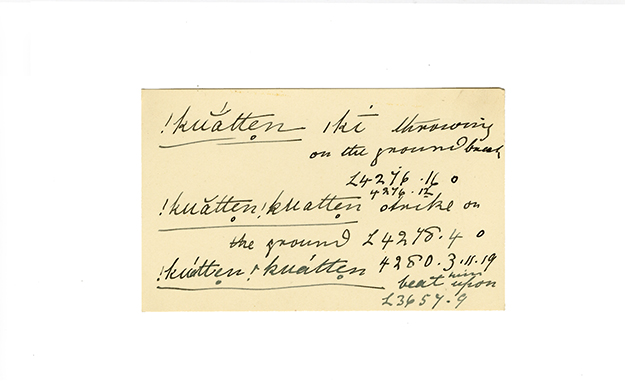 !kuátten ˌkí throwing
on the ground break
L4276.16 0
4276.12
!kuátten!kuátten strike on
the ground L4278.4 0
!kuátten!kuátten 4280.3.11.19
beat him upon
L3657.9